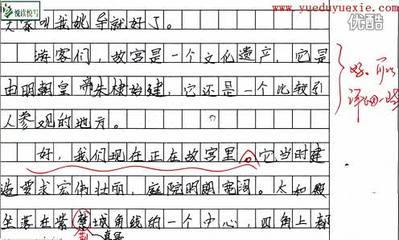 悦读悦写
www.yueduyuexie.com
优酷
叫我姚导就好了。
游客们，故宫是一个文化遗产，它是
由明朝皇帝朱棣始建，它还是一个比较引
人参观的地方。
好，我们现在正在故宫里。它当时建
造要求宏伟壮丽，庭院明朗宽阔。太和殿
坐落在紫禁城角线的一个中心，四角上都